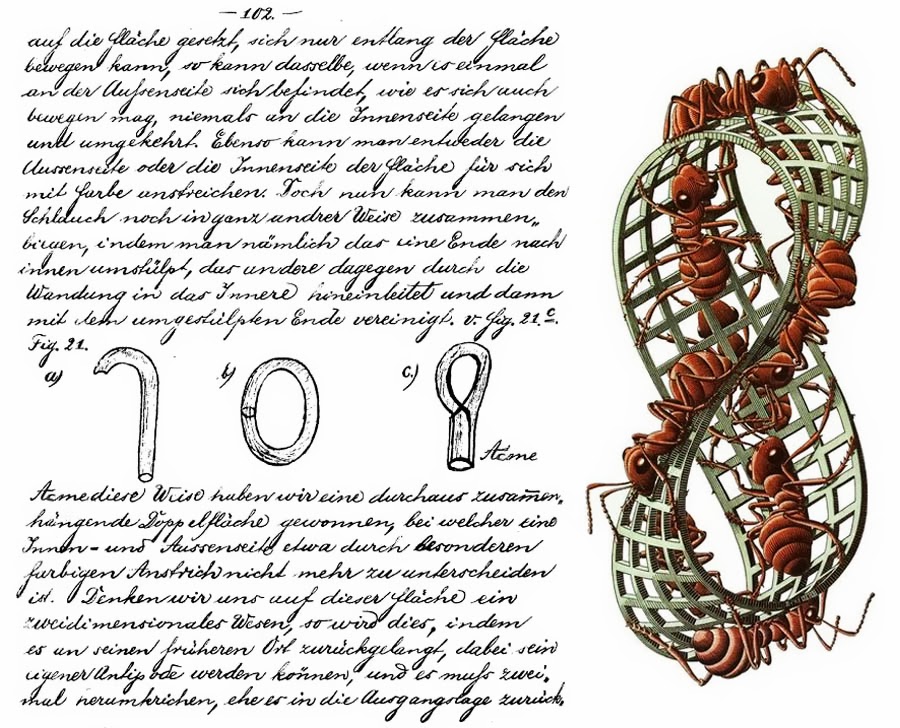 — 102. —
auf die Fläche gesetzt, sich nur entlang der Fläche
bewegen kann, so kann dasselbe, wenn es einmal
an der Aussenseite sich befindet, wie es sich auch
bewegen mag, niemals an die Innenseite gelangen
und umgekehrt. Ebenso kann man entweder die
Aussenseite oder die Innenseite der Fläche für sich
mit Farbe anstreichen. Doch nun kann man den
Schlauch noch in ganz andrer Weise zusammen„
biegen, indem man nämlich das eine Ende nach
innen umstülpt, das andere dagegen durch die
Wandung in das Innere hineinleitet und dann
mit dem umgestülpten Ende vereinigt. v. Fig. 21 c.
Fig. 21.
a) b) c)
Acme
Acme diese Weise haben wir eine durchaus zusam̅en„
hängende Doppelfläche gewonnen, bei welcher eine
Innen- und Aussenseite etwa durch besonderen
farbigen Anstrich nicht mehr zu unterscheiden
ist. Denken wir uns auf dieser Fläche ein
zweidimensionales Wesen, so wird dies, indem
es an seinen früheren Ort zurückgelangt, dabei sein
eigener Antipode werden können, und es muss zwei„
mal herumkriechen, ehe es in die Ausgangslage zurück„